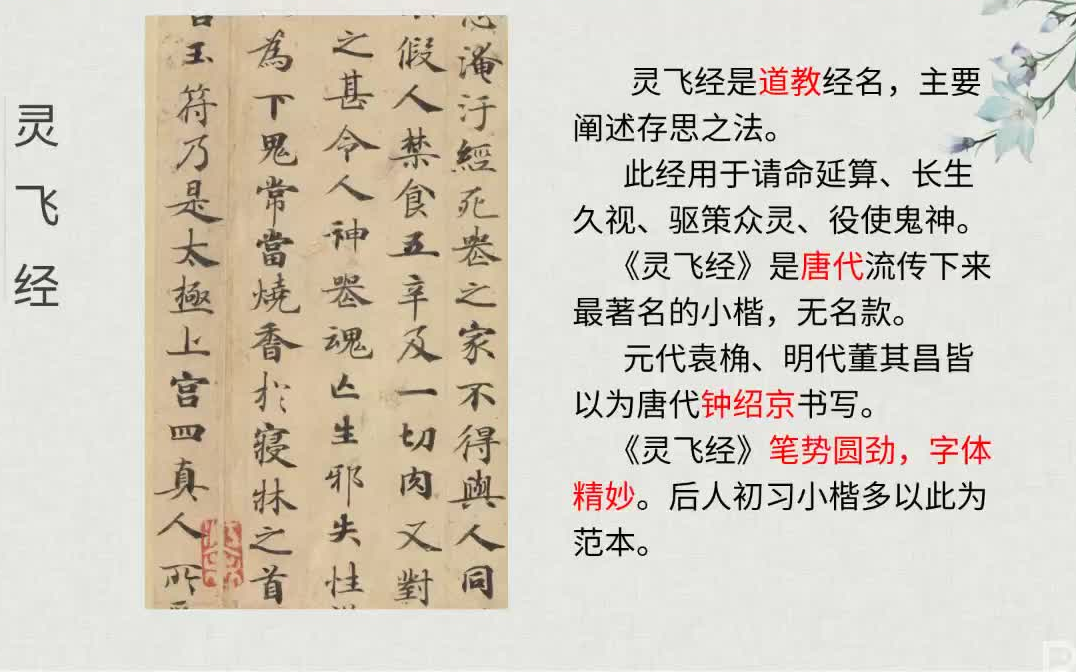 灵飞经
淹汙經死喪之家不得與人同
假人禁食五辛及一切肉又對
之甚令人神喪魂亡生邪失性
為下鬼常當燒香於寢牀之首
玉符乃是太極上宮四真人所
灵飞经是道教经名，主要
阐述存思之法。
此经用于请命延算、长生
久视、驱策众灵、役使鬼神。
《灵飞经》是唐代流传下来
最著名的小楷，无名款。
元代袁桷、明代董其昌皆
以为唐代钟绍京书写。
《灵飞经》笔势圆劲，字体
精妙。后人初习小楷多以此为
范本。